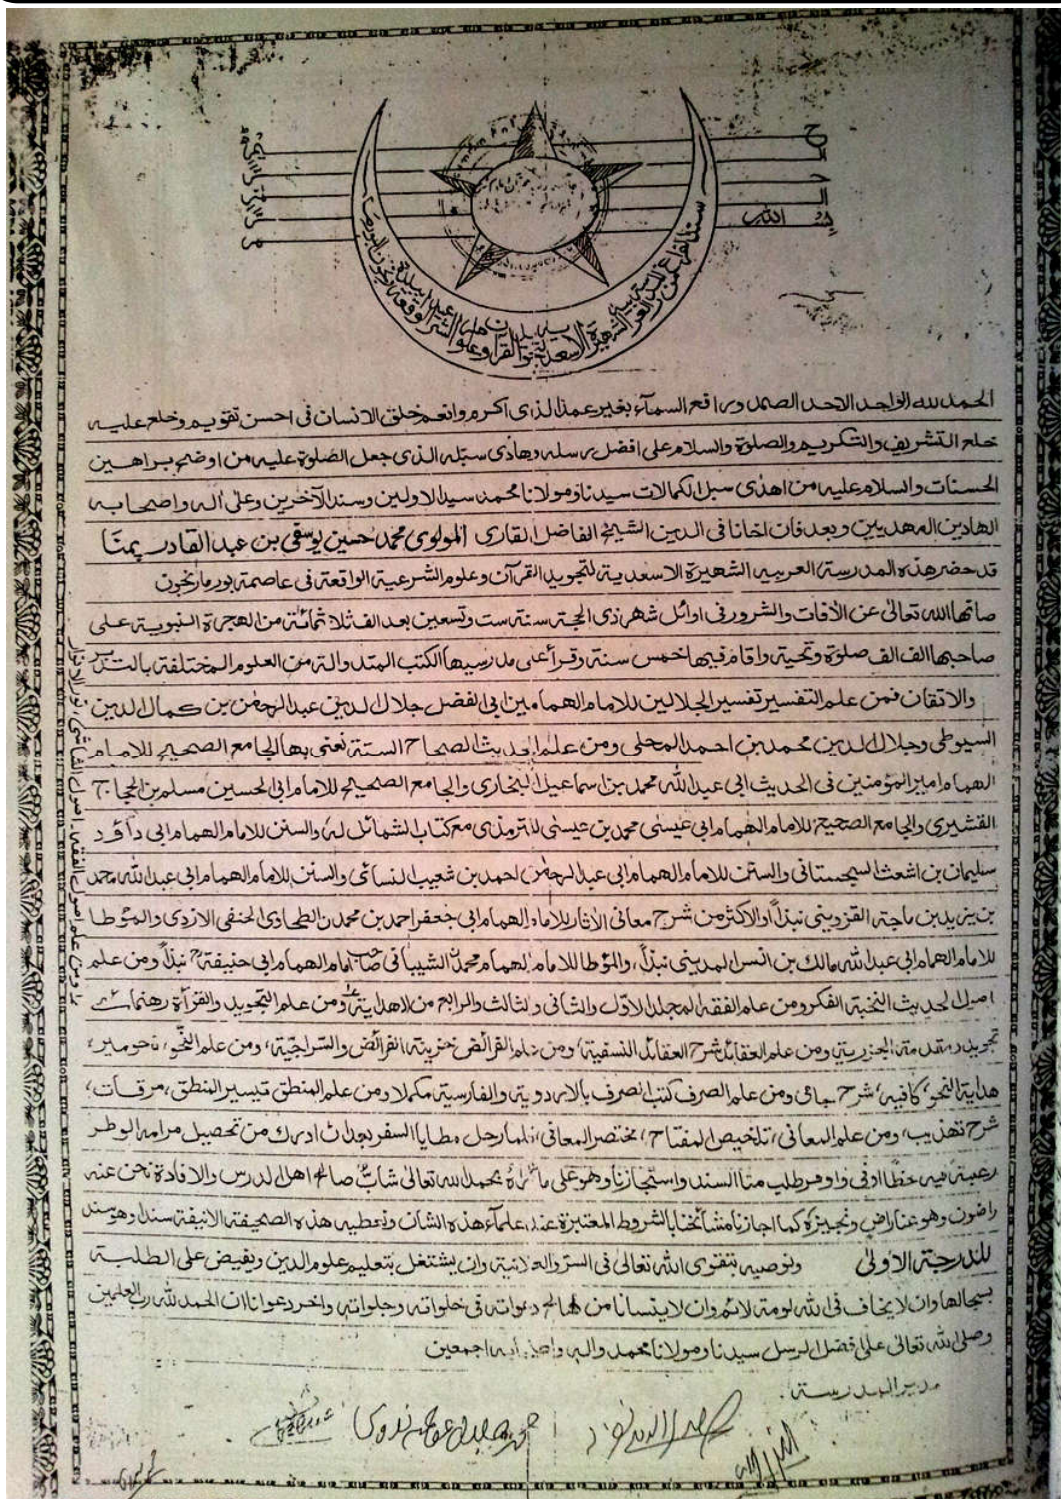 الحمد لله الواحد الاحد الصمد ورافع السمآء بغير عمد الذى اكرم وانعم خلق الانسان فى احسن تقويم وخلع عليه
خلع التشريف والتكريم والصلوة والسلام على افضل رسله وهادى سبله الذى جعل الصلوة عليه من اوضح براهين
الحسنات والسلام عليه من اهدى سبل الكمالات سيدنا ومولانا محمد سيد الاولين وسند الآخرين وعلى اله واصحابه
الهادين المهديين وبعد فان اخانا فى الدين الشيخ الفاضل القارى المولوى محمد حسين يوسفى بن عبد القادر
قد حضر هذه المدرسة العربيه الشهيرة الاسعدية لتجويد القرآن وعلوم الشرعية الواقعة فى عاصمة بورما رنجون
صانها الله تعالى عن الأفات والشرور فى اوائل شهر ذى الحجة سنة ست وتسعين بعد الف ثلاثمائة من الهجرة النبوية على
صاحبها الف الف صلوة وتحية واقام فيها خمس سنة وقرأ على مدرسيها الكتب المتداولة من العلوم المختلفة بالتدبر
والاتقان فمن علم التفسير تفسير الجلالين للامام الهمامين ابى الفضل جلال الدين عبد الرحمن بن كمال الدين
السيوطى وجلال الدين محمد بن احمد المحلى ومن علم الحديث الصحاح الستة نعنى بها الجامع الصحيح للامام
الهمام امير المؤمنين فى الحديث ابى عبد الله محمد بن اسماعيل البخارى والجامع الصحيح للامام ابى الحسين مسلم بن الحجاج
القشيرى والجامع الصحيح للامام الهمام ابى عيسى محمد بن عيسى الترمذى مع كتاب الشمائل له والسنن للامام الهمام ابى داؤد
سليمان بن اشعث السجستانى والسنن للامام الهمام ابى عبد الرحمن احمد بن شعيب النسائى والسنن للامام الهمام ابى عبد الله محمد
بن يزيد بن ماجة القزوينى نبذاً والاكثر من شرح معانى الأثار للامام الهمام ابى جعفر احمد بن محمد بن الطحاوى الحنفى الازدى والمؤطا
للامام الهمام ابى عبد الله مالك بن انس المدينى نبذاً، والمؤطا للامام الهمام محمد الشيبانى صاحب امام الهمام ابى حنيفة نبذاً ومن علم
اصول الحديث النخبة الفكر ومن علم الفقه المجلد الاول والثانى والثالث والرابع من الهداية ومن علم التجويد والقرأة رهنمائے
تجويد، مقدمة الجزرية ومن علم العقائد شرح العقائد النسفية، ومن علم الفرائض خزينة الفرائض والسراجية، ومن علم النحو، نحومير،
هداية النحو، كافيه، شرح جامى ومن علم الصرف كتب الصرف بالاردوية والفارسية مكملا ومن علم المنطق تيسير المنطق، مرقات،
شرح تهذيب، ومن علم المعانى، تلخيص المفتاح، مختصر المعانى، فلما رحل مطايا السفر بعد ان ادرك من تحصيل مرامه الوطر
رغبة فيه حظا اوفى واوفر طلب منا السند واستجازنا وهو على ما نراه بحمد الله تعالى شاب صالح اهل الدرس والافادة نحن عنه
راضون وهو عنا راض ونجيزه كما اجازنا مشائخنا بالشروط المعتبرة عند علمآء هذه الشان ونعطيه هذه الصحيفة الانيقة سندا وهو سند
للدرجة الاولى ونوصيه بتقوى الله تعالى فى السر والعلانية وان يشتغل بتعليم علوم الدين ويفيض على الطلبة
بسجالها وان لا يخاف فى الله لومة لائم وان لا ينسانا من صالح دعواته فى خلواته وجلواته واخر دعوانا ان الحمد لله رب العلمين
وصلى الله تعالى على افضل الرسل سيدنا ومولانا محمد واله واصحابه اجمعين
مدير المدرسة
ومن علم اصول الفقه، اصول الشاشى، نور الانوار